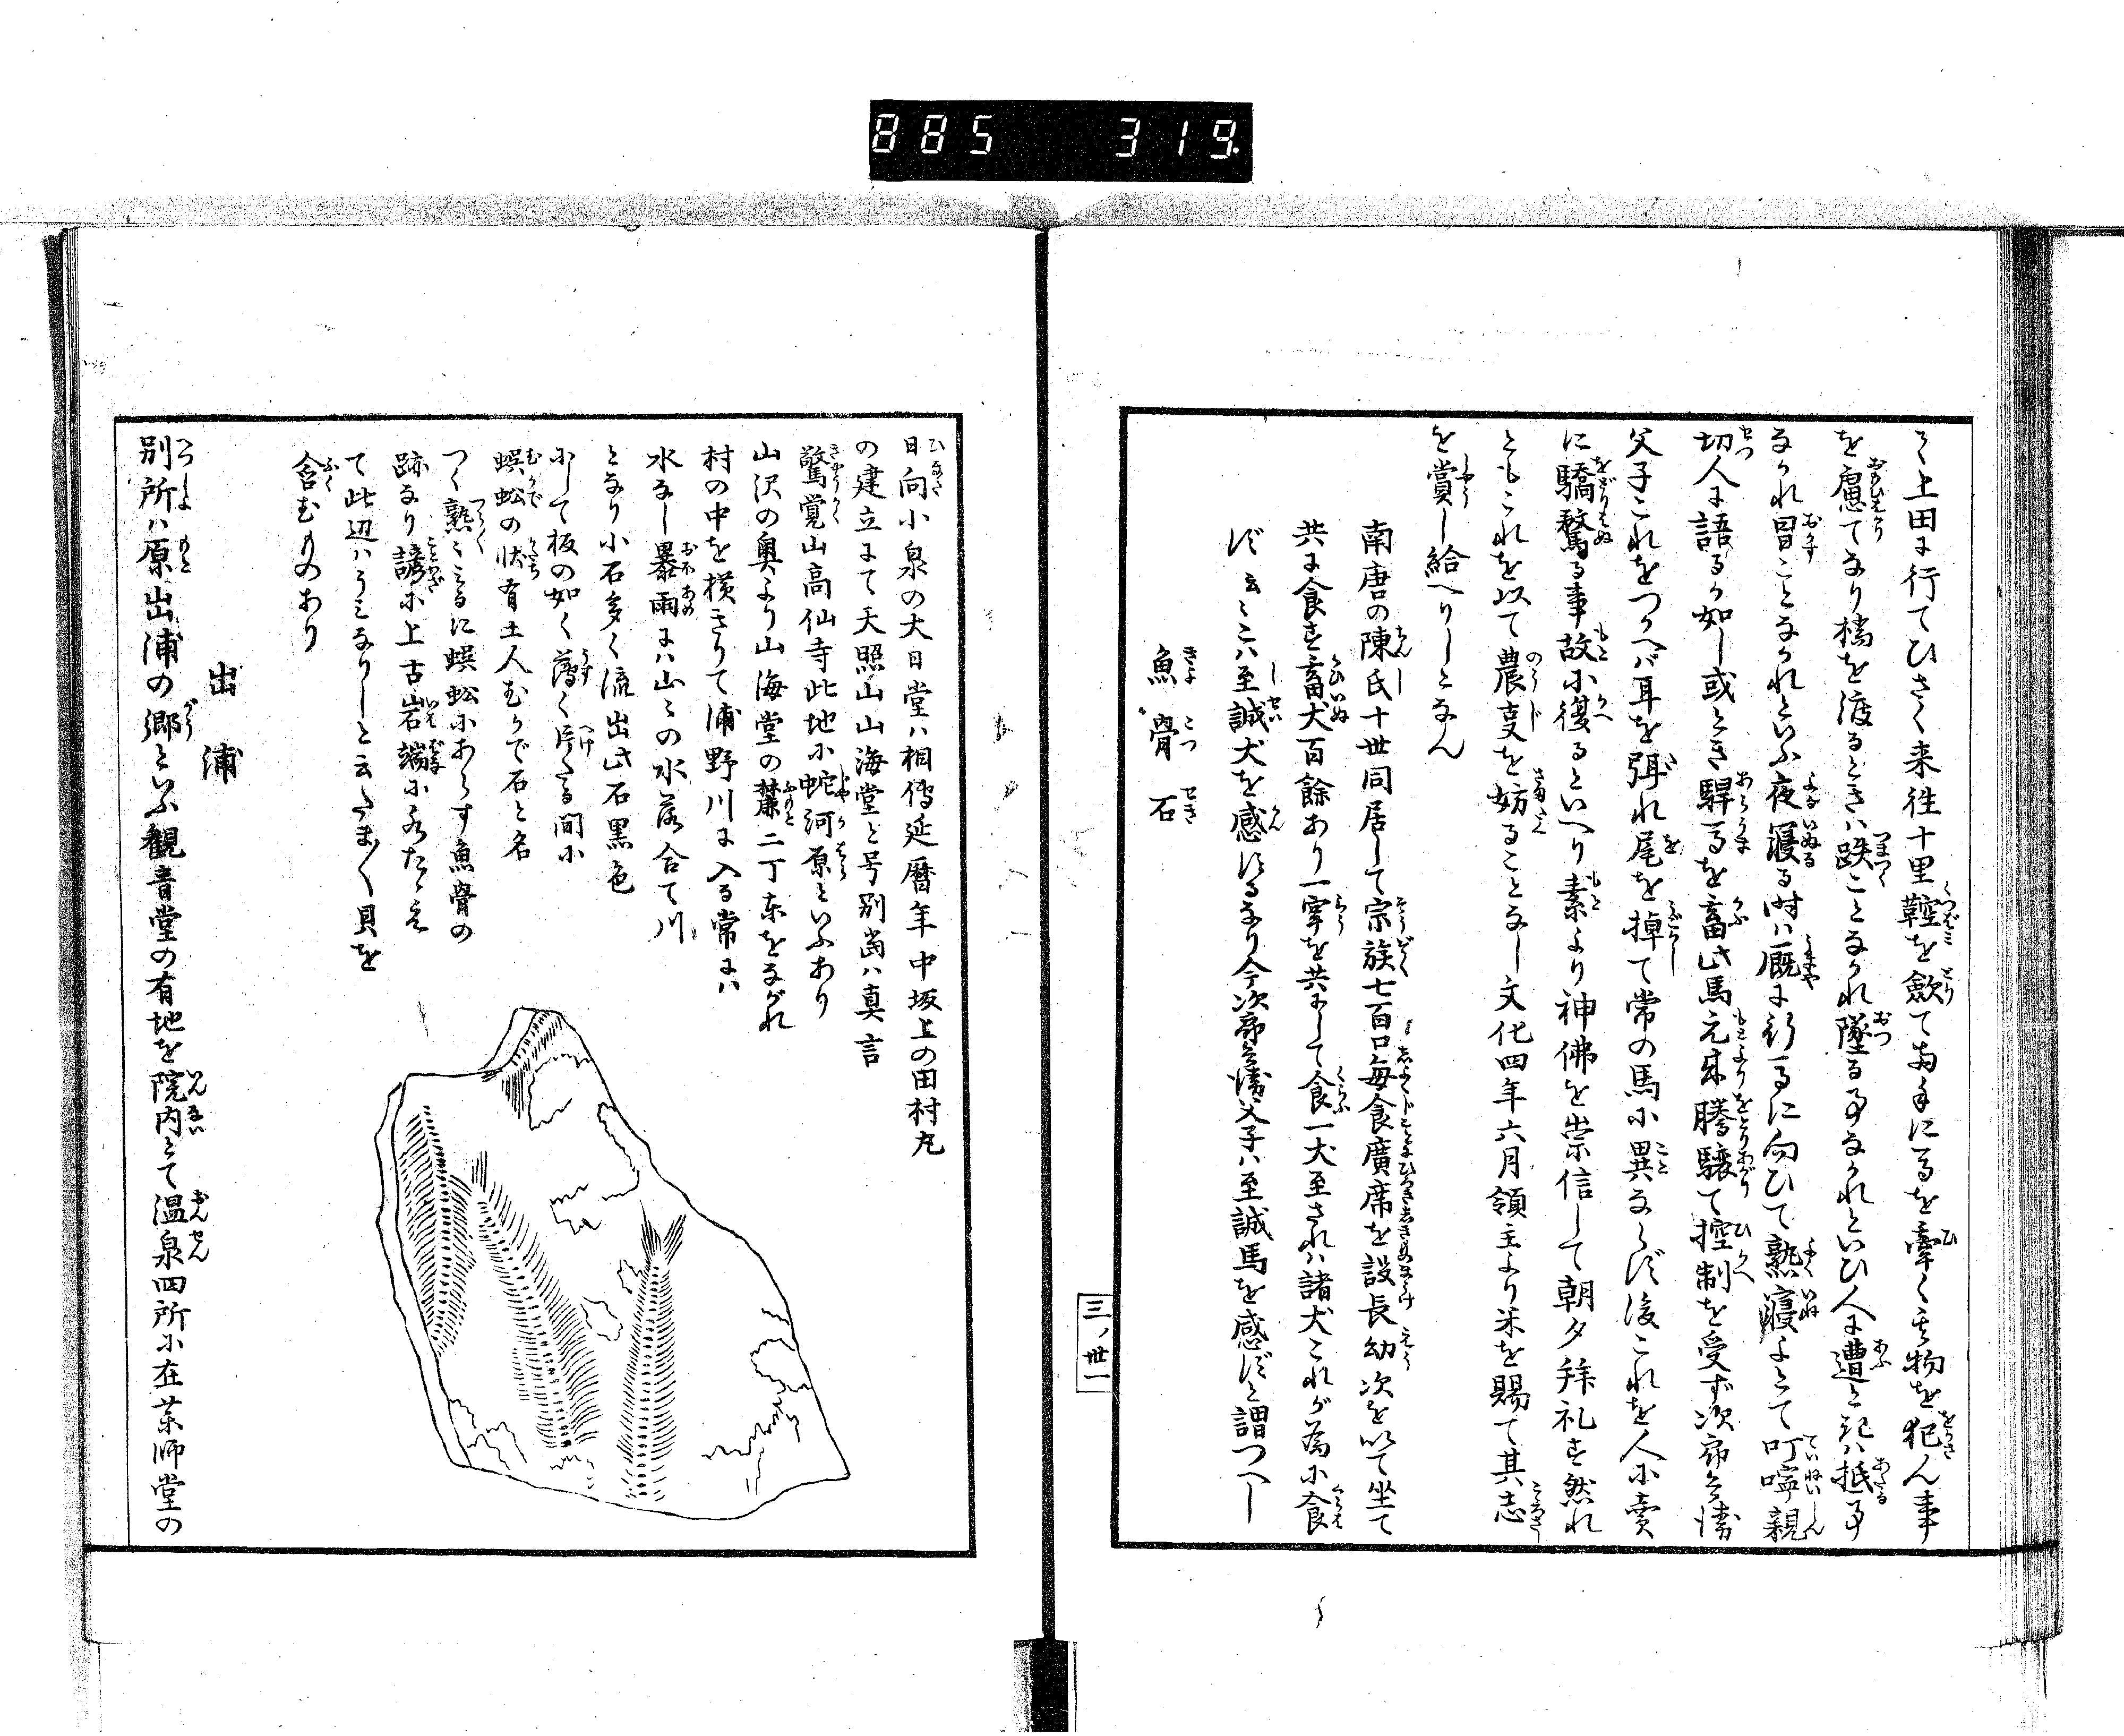 885 319
て上田に行てひさく来往十里鞚を歛て両手に馬を牽く其物を犯ん事
を慮てなり橋を渡るときハ跌ことなかれ墜る事なかれといひ人に遭ときハ抵事
なかれ冒ことなかれといふ夜寝る時ハ厩に行馬に向ひて熟寝よとて叮嚀親
切人に語るか如し或とき駻馬を畜此馬元来騰驤て控制を受ず次郎兵衛
父子これをつかへバ耳を弭れ尾を掉て常の馬に異ならず後これを人に賣
に驕騖る事故に復るといへり素より神佛を崇信して朝夕拜礼す然れ
ともこれを以て農事を妨ることなし文化四年六月領主より米を賜て其志
を賞し給へりしとなん
南唐の陳氏十世同居して宗族七百口毎食廣席を設長幼次を以て坐て
共に食す畜犬百餘あり一牢を共にして食一犬至されハ諸犬これが為に食
ず云々ハ至誠犬を感ずるなり今次郎兵衛父子ハ至誠馬を感ずと謂つへし
魚骨石
三ノ卅一
日向小泉の大日堂ハ相傳延暦年中坂上の田村丸
の建立にて天照山山海堂と号別當ハ真言
驚覚山高仙寺此地に蛇河原といふあり
山沢の奥より山海堂の麓二丁東をながれ
村の中を横きりて浦野川に入る常にハ
水なし暴雨にハ山々の水落合て川
となり小石多く流出此石黒色
にして板の如く薄く片たる間に
蜈蚣の状有土人むかで石と名
つく熟々みるに蜈蚣にあらす魚骨の
跡なり諺に上古岩端に
て此辺ハうミなりしと云たま／＼貝を
含むものあり
出浦
別所ハ原出浦の郷といふ観音堂の有地を院内とて温泉四所に在薬師堂の